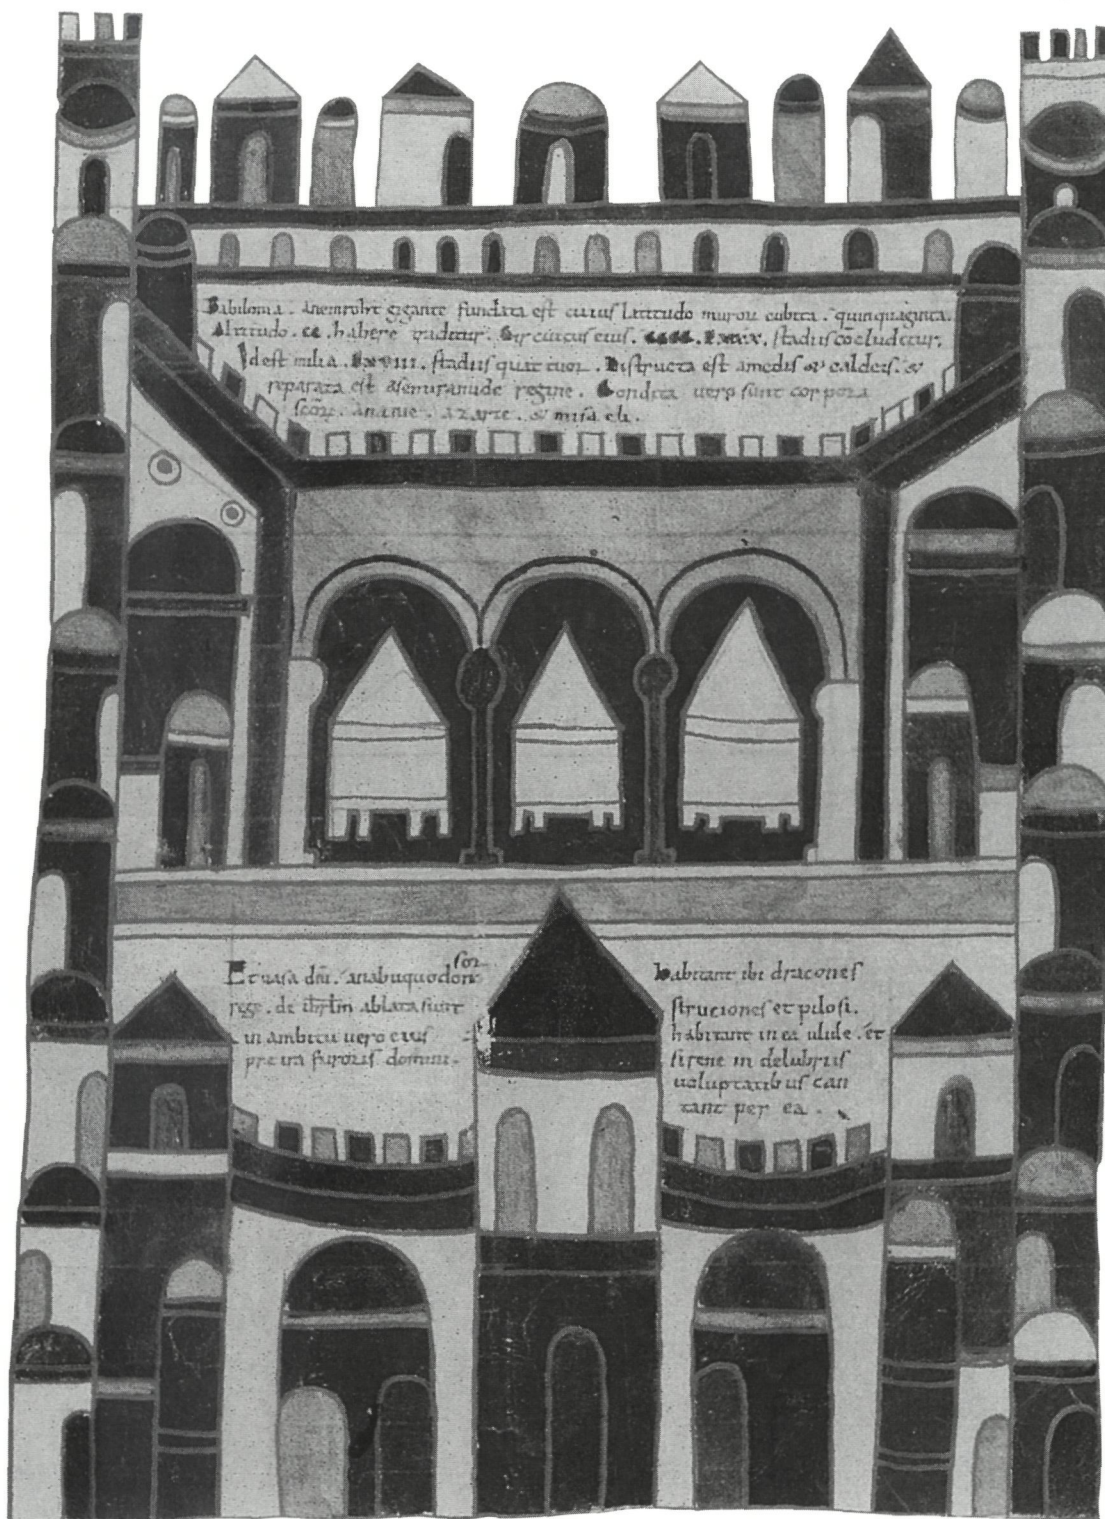 Babilonia. Anemroht gigante fundata est cuius latitudo murorū cubita. quinquaginta.
Altitudo. cc. habere traditur. Circuitus eius. cccc. Lxxx. stadiis cōcluditur.
Idest milia. Lxviii. stadiis quattuor. Distructa est amedis & caldeis. &
reparata est asemiramide regine. Condita vero sunt corpora
scōrū. ananie. azarie. & misaeli.
Et vasa dn̄i. anabuquodonosor
rege. de ihrlm ablata sunt
in ambitu uero eius
pre ira furoris domini.
habitant ibi dracones
struciones et pilosi.
habitant in ea ulule. et
sirene in delubris
uoluptatibus can
tant per ea.